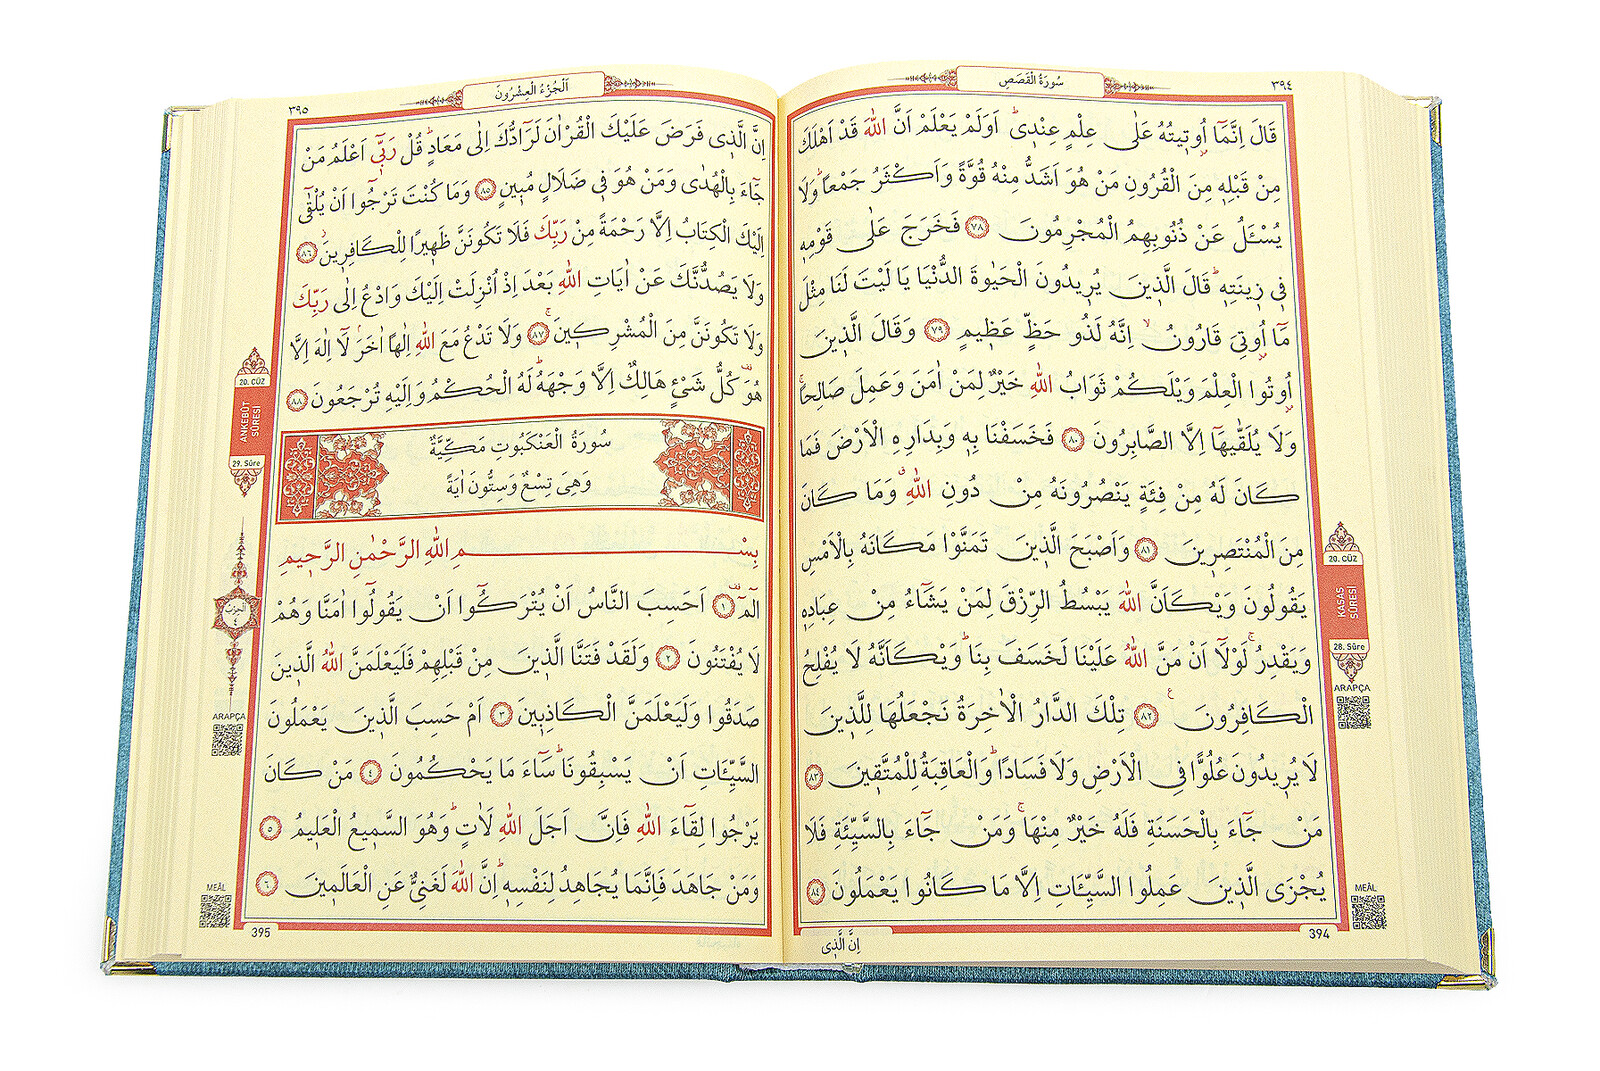 سُورَةُ الْقَصَصِ
٣٩٤
قَالَ اِنَّمَٓا اُو۫ت۪يتُهُ عَلٰى عِلْمٍ عِنْد۪يۜ اَوَلَمْ يَعْلَمْ اَنَّ اللّٰهَ قَدْ اَهْلَكَ
مِنْ قَبْلِه۪ مِنَ الْقُرُونِ مَنْ هُوَ اَشَدُّ مِنْهُ قُوَّةً وَاَكْثَرُ جَمْعاًۜ وَلَا
يُسْـَٔلُ عَنْ ذُنُوبِهِمُ الْمُجْرِمُونَ ﴿٧٨﴾ فَخَرَجَ عَلٰى قَوْمِه۪
ف۪ي ز۪ينَتِه۪ۜ قَالَ الَّذ۪ينَ يُر۪يدُونَ الْحَيٰوةَ الدُّنْيَا يَا لَيْتَ لَنَا مِثْلَ
مَٓا اُو۫تِيَ قَارُونُۙ اِنَّهُ لَذُو حَظٍّ عَظ۪يمٍ ﴿٧٩﴾ وَقَالَ الَّذ۪ينَ
اُو۫تُوا الْعِلْمَ وَيْلَكُمْ ثَوَابُ اللّٰهِ خَيْرٌ لِمَنْ اٰمَنَ وَعَمِلَ صَالِحاًۚ
وَلَا يُلَقّٰيهَٓا اِلَّا الصَّابِرُونَ ﴿٨٠﴾ فَخَسَفْنَا بِه۪ وَبِدَارِهِ الْاَرْضَ فَمَا
كَانَ لَهُ مِنْ فِئَةٍ يَنْصُرُونَهُ مِنْ دُونِ اللّٰهِۗ وَمَا كَانَ
مِنَ الْمُنْتَصِر۪ينَ ﴿٨١﴾ وَاَصْبَحَ الَّذ۪ينَ تَمَنَّوْا مَكَانَهُ بِالْاَمْسِ
يَقُولُونَ وَيْكَاَنَّ اللّٰهَ يَبْسُطُ الرِّزْقَ لِمَنْ يَشَٓاءُ مِنْ عِبَادِه۪
وَيَقْدِرُۚ لَوْلَٓا اَنْ مَنَّ اللّٰهُ عَلَيْنَا لَخَسَفَ بِنَاۜ وَيْكَاَنَّهُ لَا يُفْلِحُ
الْكَافِرُونَ۟ ﴿٨٢﴾ تِلْكَ الدَّارُ الْاٰخِرَةُ نَجْعَلُهَا لِلَّذ۪ينَ
لَا يُر۪يدُونَ عُلُوًّا فِي الْاَرْضِ وَلَا فَسَادًاۜ وَالْعَاقِبَةُ لِلْمُتَّق۪ينَ ﴿٨٣﴾
مَنْ جَٓاءَ بِالْحَسَنَةِ فَلَهُ خَيْرٌ مِنْهَاۚ وَمَنْ جَٓاءَ بِالسَّيِّئَةِ فَلَا
يُجْزَى الَّذ۪ينَ عَمِلُوا السَّيِّـَٔاتِ اِلَّا مَا كَانُوا يَعْمَلُونَ ﴿٨٤﴾
20. CÜZ
KASAS SÛRESİ
28. Sûre
ARAPÇA
MEÂL
394
اِنَّ الَّذ۪ي
اَلْجُزْءُ الْعِشْرُونَ
٣٩٥
اِنَّ الَّذ۪ي فَرَضَ عَلَيْكَ الْقُرْاٰنَ لَرَٓادُّكَ اِلٰى مَعَادٍۜ قُلْ رَبّ۪ٓي اَعْلَمُ مَنْ
جَٓاءَ بِالْهُدٰى وَمَنْ هُوَ ف۪ي ضَلَالٍ مُب۪ينٍ ﴿٨٥﴾ وَمَا كُنْتَ تَرْجُٓوا اَنْ يُلْقٰٓى
اِلَيْكَ الْكِتَابُ اِلَّا رَحْمَةً مِنْ رَبِّكَ فَلَا تَكُونَنَّ ظَه۪يرًا لِلْكَافِر۪ينَۘ ﴿٨٦﴾
وَلَا يَصُدُّنَّكَ عَنْ اٰيَاتِ اللّٰهِ بَعْدَ اِذْ اُنْزِلَتْ اِلَيْكَ وَادْعُ اِلٰى رَبِّكَ
وَلَا تَكُونَنَّ مِنَ الْمُشْرِك۪ينَۚ ﴿٨٧﴾ وَلَا تَدْعُ مَعَ اللّٰهِ اِلٰهاً اٰخَرَۢ لَٓا اِلٰهَ اِلَّا
هُوَ كُلُّ شَيْءٍ هَالِكٌ اِلَّا وَجْهَهُۜ لَهُ الْحُكْمُ وَاِلَيْهِ تُرْجَعُونَ ﴿٨٨﴾
سُورَةُ الْعَنْكَبُوتِ مَكِّيَّةٌ
وَهِيَ تِسْعٌ وَسِتُّونَ اٰيَةً
بِسْمِ اللّٰهِ الرَّحْمٰنِ الرَّح۪يمِ
الٓمٓ ﴿١﴾ اَحَسِبَ النَّاسُ اَنْ يُتْرَكُٓوا اَنْ يَقُولُٓوا اٰمَنَّا وَهُمْ
لَا يُفْتَنُونَ ﴿٢﴾ وَلَقَدْ فَتَنَّا الَّذ۪ينَ مِنْ قَبْلِهِمْ فَلَيَعْلَمَنَّ اللّٰهُ الَّذ۪ينَ
صَدَقُوا وَلَيَعْلَمَنَّ الْكَاذِب۪ينَ ﴿٣﴾ اَمْ حَسِبَ الَّذ۪ينَ يَعْمَلُونَ
السَّيِّـَٔاتِ اَنْ يَسْبِقُونَاۜ سَٓاءَ مَا يَحْكُمُونَ ﴿٤﴾ مَنْ كَانَ
يَرْجُوا لِقَٓاءَ اللّٰهِ فَاِنَّ اَجَلَ اللّٰهِ لَاٰتٍۜ وَهُوَ السَّم۪يعُ الْعَل۪يمُ ﴿٥﴾
وَمَنْ جَاهَدَ فَاِنَّمَا يُجَاهِدُ لِنَفْسِه۪ۜ اِنَّ اللّٰهَ لَغَنِيٌّ عَنِ الْعَالَم۪ينَ ﴿٦﴾
20. CÜZ
ANKEBÛT SÛRESİ
29. Sûre
الحزب
٤
ARAPÇA
MEÂL
395